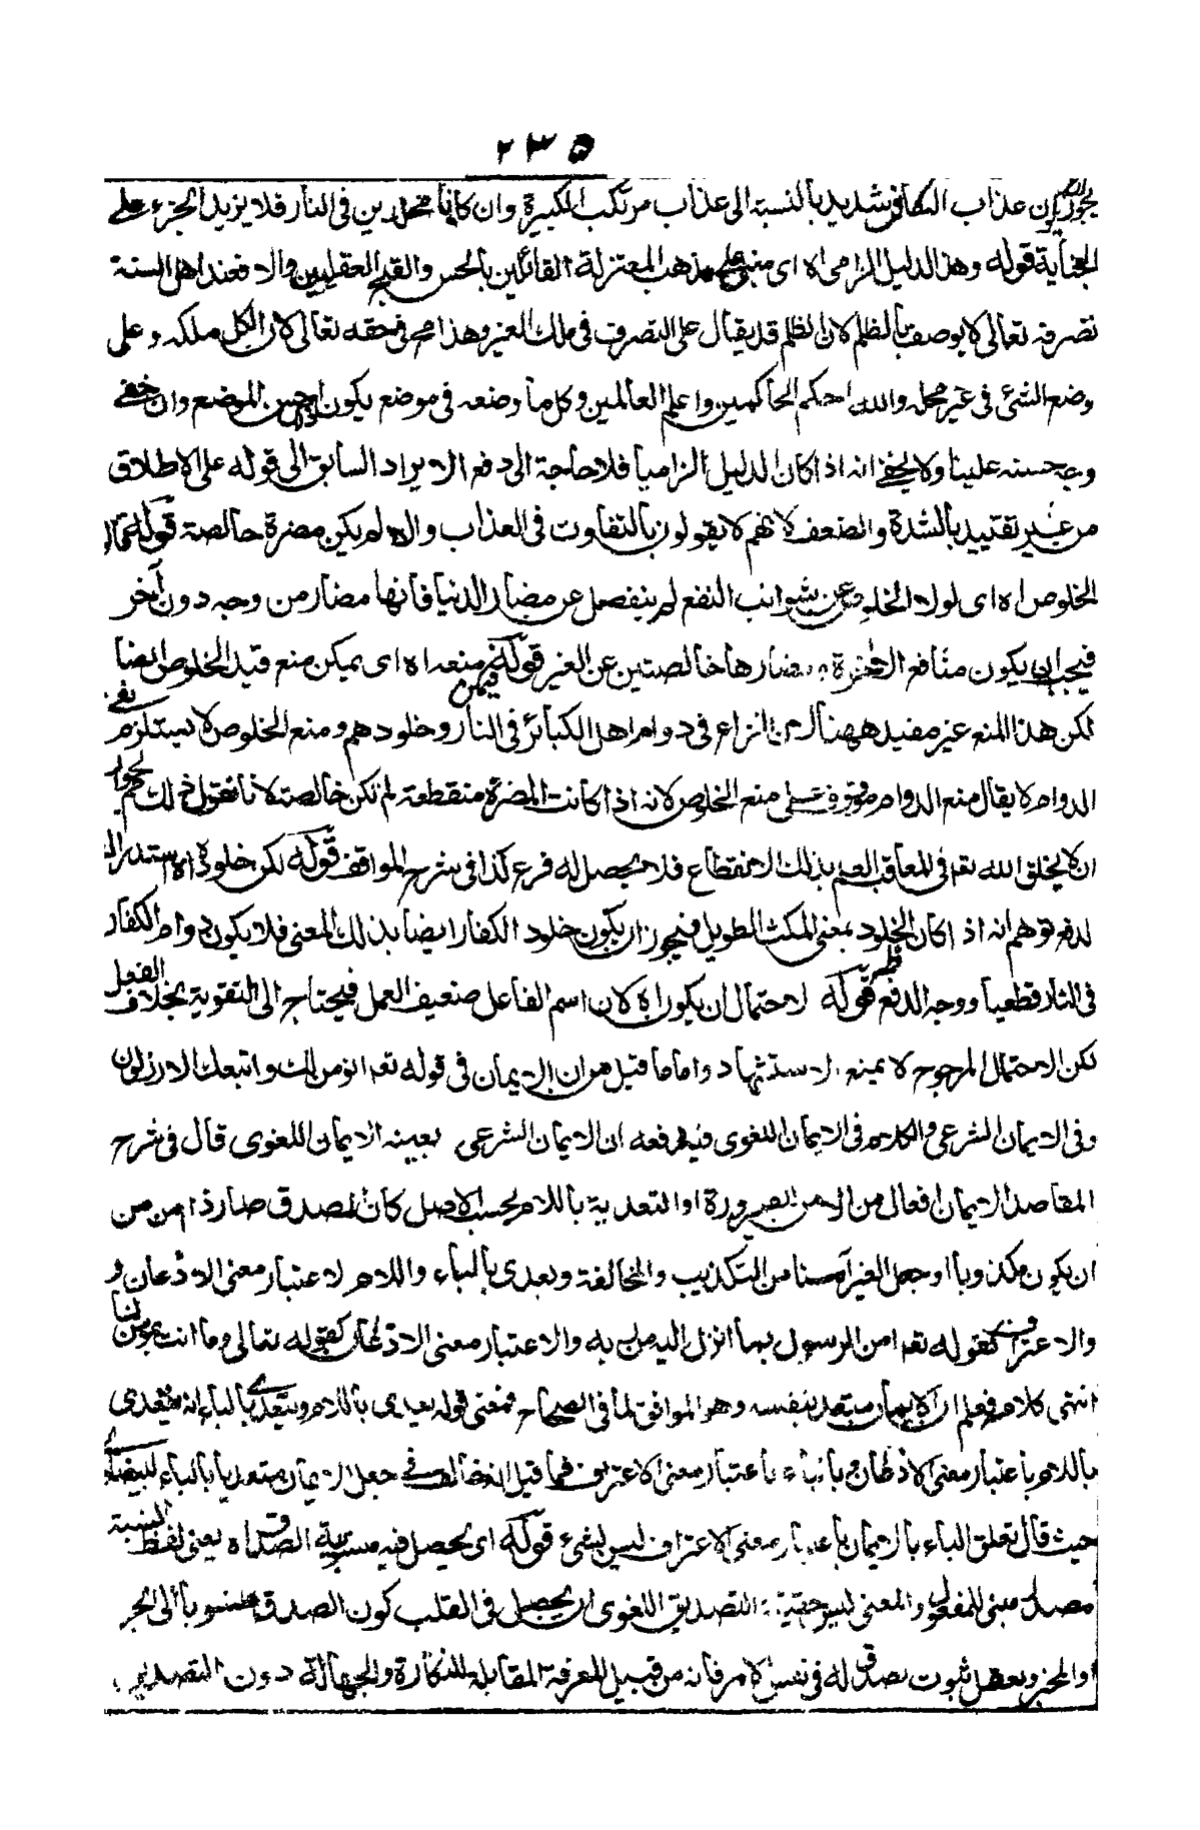 ٢٣٥
يجوز ان يكون عذاب الكافر شديد بالنسبة الى عذاب مرتكب الكبيرة وان كانا مخلدين فى النار فلا يزيد الجزاء على
الجناية قوله وهذا الدليل الزامى اه اى مبنى على مذهب المعتزلة القائلين بالحسن والقبح العقليين والا فعند اهل السنة
تصرفه تعالى لا يوصف بالظلم لان الظلم قد يقال على التصرف فى ملك الغير وهذا مح فى حقه تعالى لان الكل ملكه وعلى
وضع الشئ فى غير محله والله احكم الحاكمين واعلم العالمين وكل ما وضعه فى موضع يكون احسن المواضع وان خفى
وجه حسنه علينا ولا يخفى انه اذا كان الدليل الزاميا فلا حاجة الى دفع الايراد السابق الى قوله على الاطلاق
من غير تقييد بالشدة والضعف لانهم لا يقولون بالتفاوت فى العذاب والا لم يكن مضرة خالصة قوله
الخلوص اه اى لولا الخلوص عن شوائب النفع لم ينفصل عن مضار الدنيا فانها مضار من وجه دون آخر
فيجب ان يكون منافع الآخرة ومضارها خالصتين عن الغير قوله فيمكن منعه اه اى يمكن منع قيد الخلوص ايضا
لكن هذا المنع غير مفيد ههنا لان النزاع فى دوام اهل الكبائر فى النار وخلودهم ومنع الخلوص لا يستلزم نفى
الدوام لا يقال منع الدوام موقوف على منع الخلوص لانه اذا كانت المضرة منقطعة لم تكن خالصة لانا نقول ذلك مم لجواز
ان لا يخلق الله تعه فى المعاقب العلم بذلك الانقطاع فلا يحصل له فرح كذا فى شرح المواقف قوله لكن خلوده اه استدراك
لدفع توهم انه اذا كان الخلود بمعنى المكث الطويل فيجوز ان يكون خلود الكفار ايضا بذلك المعنى فلا يكون دوام الكفار
فى النار قطعيا ووجه الدفع ظهر قوله لاحتمال ان يكون اه لان اسم الفاعل ضعيف العمل فيحتاج الى التقوية بخلاف الفعل
لكن الاحتمال المرجوح لا يمنع الاستشهاد واما ما قيل من ان الايمان فى قوله تعه انؤمن لك واتبعك الارذلون
وفى الايمان الشرعى والكلام فى الايمان اللغوى فيدفعه ان الايمان الشرعى بعينه الايمان اللغوى قال فى شرح
المقاصد الايمان افعال من الامن للصيرورة او التعدية باللام بحسب الاصل كان المصدق صار ذا امن من
ان يكون مكذوبا او جعل الغير آمنا من التكذيب والمخالفة ويعدى بالباء واللام لاعتبار معنى الاذعان و
والاعتراف كقوله تعه امن الرسول بما انزل اليه من ربه والاعتبار معنى الاذعان كقوله تعالى وما انت بمؤمن لنا
انتهى كلامه فعلم ان الايمان متعد بنفسه وهو الموافق لما فى الصحاح فمعنى قوله يعدى باللام ويتعدى بالباء انه يتعدى
باللام باعتبار معنى الاذعان وبالباء باعتبار معنى الاعتراف فما قيل جعل الايمان متعديا بالباء
حيث قال تعلق الباء بالايمان باعتبار معنى الاعتراف ليس بشئ قوله اى يحصل فيه نسبة الصدق اه يعنى لفظ النسبة
مصدر مبنى للمفعول والمعنى ليس حقيقة التصديق اللغوى ان يحصل فى القلب كون الصدق منسوبا الى الخبر
والمخبر وبعض ثبوت صدق له فى نفس الامر فانه من قبيل المعرفة المقابلة للنكارة والجهالة دون التصديق